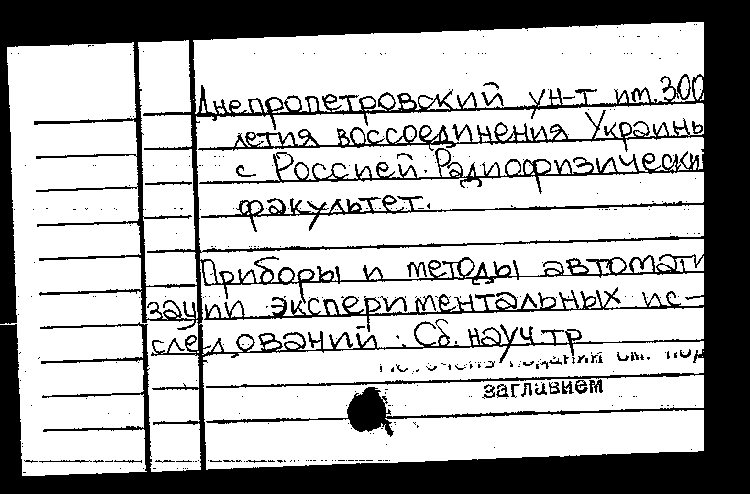 Днепропетровский ун-т им. 300
летия воссоединения Украины
с Россией. Радиофизический
факультет.
Приборы и методы автомати
зации экспериментальных ис-
следований : Сб. науч. тр.
изданий см. под
заглавием